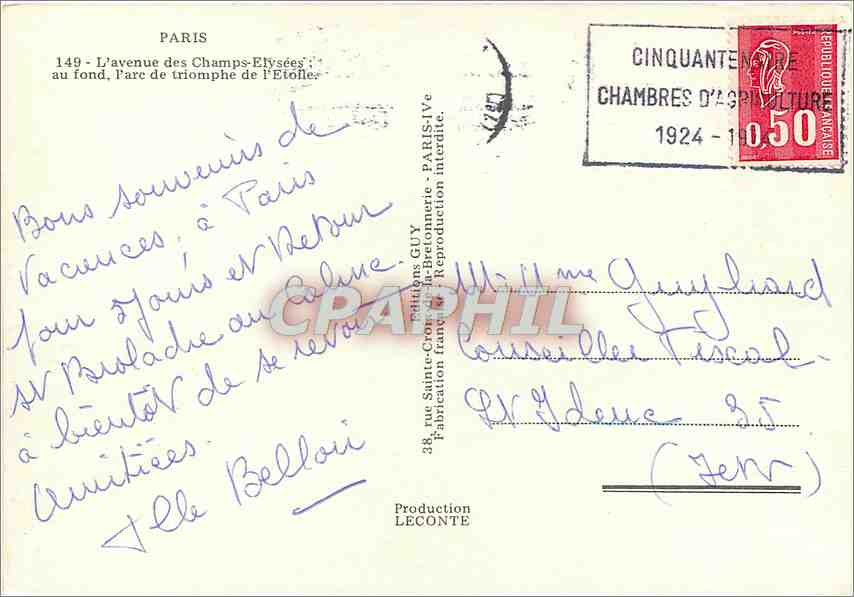 PARIS
149 - L'avenue des Champs-Elysées ;
au fond, l'arc de triomphe de l'Etoile.
Bons souvenirs de
Vacances, à Paris
pour 5 jours et Retour
St Broladre au calme.
à bientôt de se revoir
Amitiées.
Mlle Bellou
Editions GUY
38, rue Sainte-Croix-de-la-Bretonnerie - PARIS-IVe
Fabrication française - Reproduction interdite.
Production
LECONTE
CINQUANTENAIRE
CHAMBRES D'AGRICULTURE
1924 - 19
REPUBLIQUE FRANÇAISE
0,50
Mr Mme
Conseiller Fiscal
St Ideuc 35
CPAPHIL